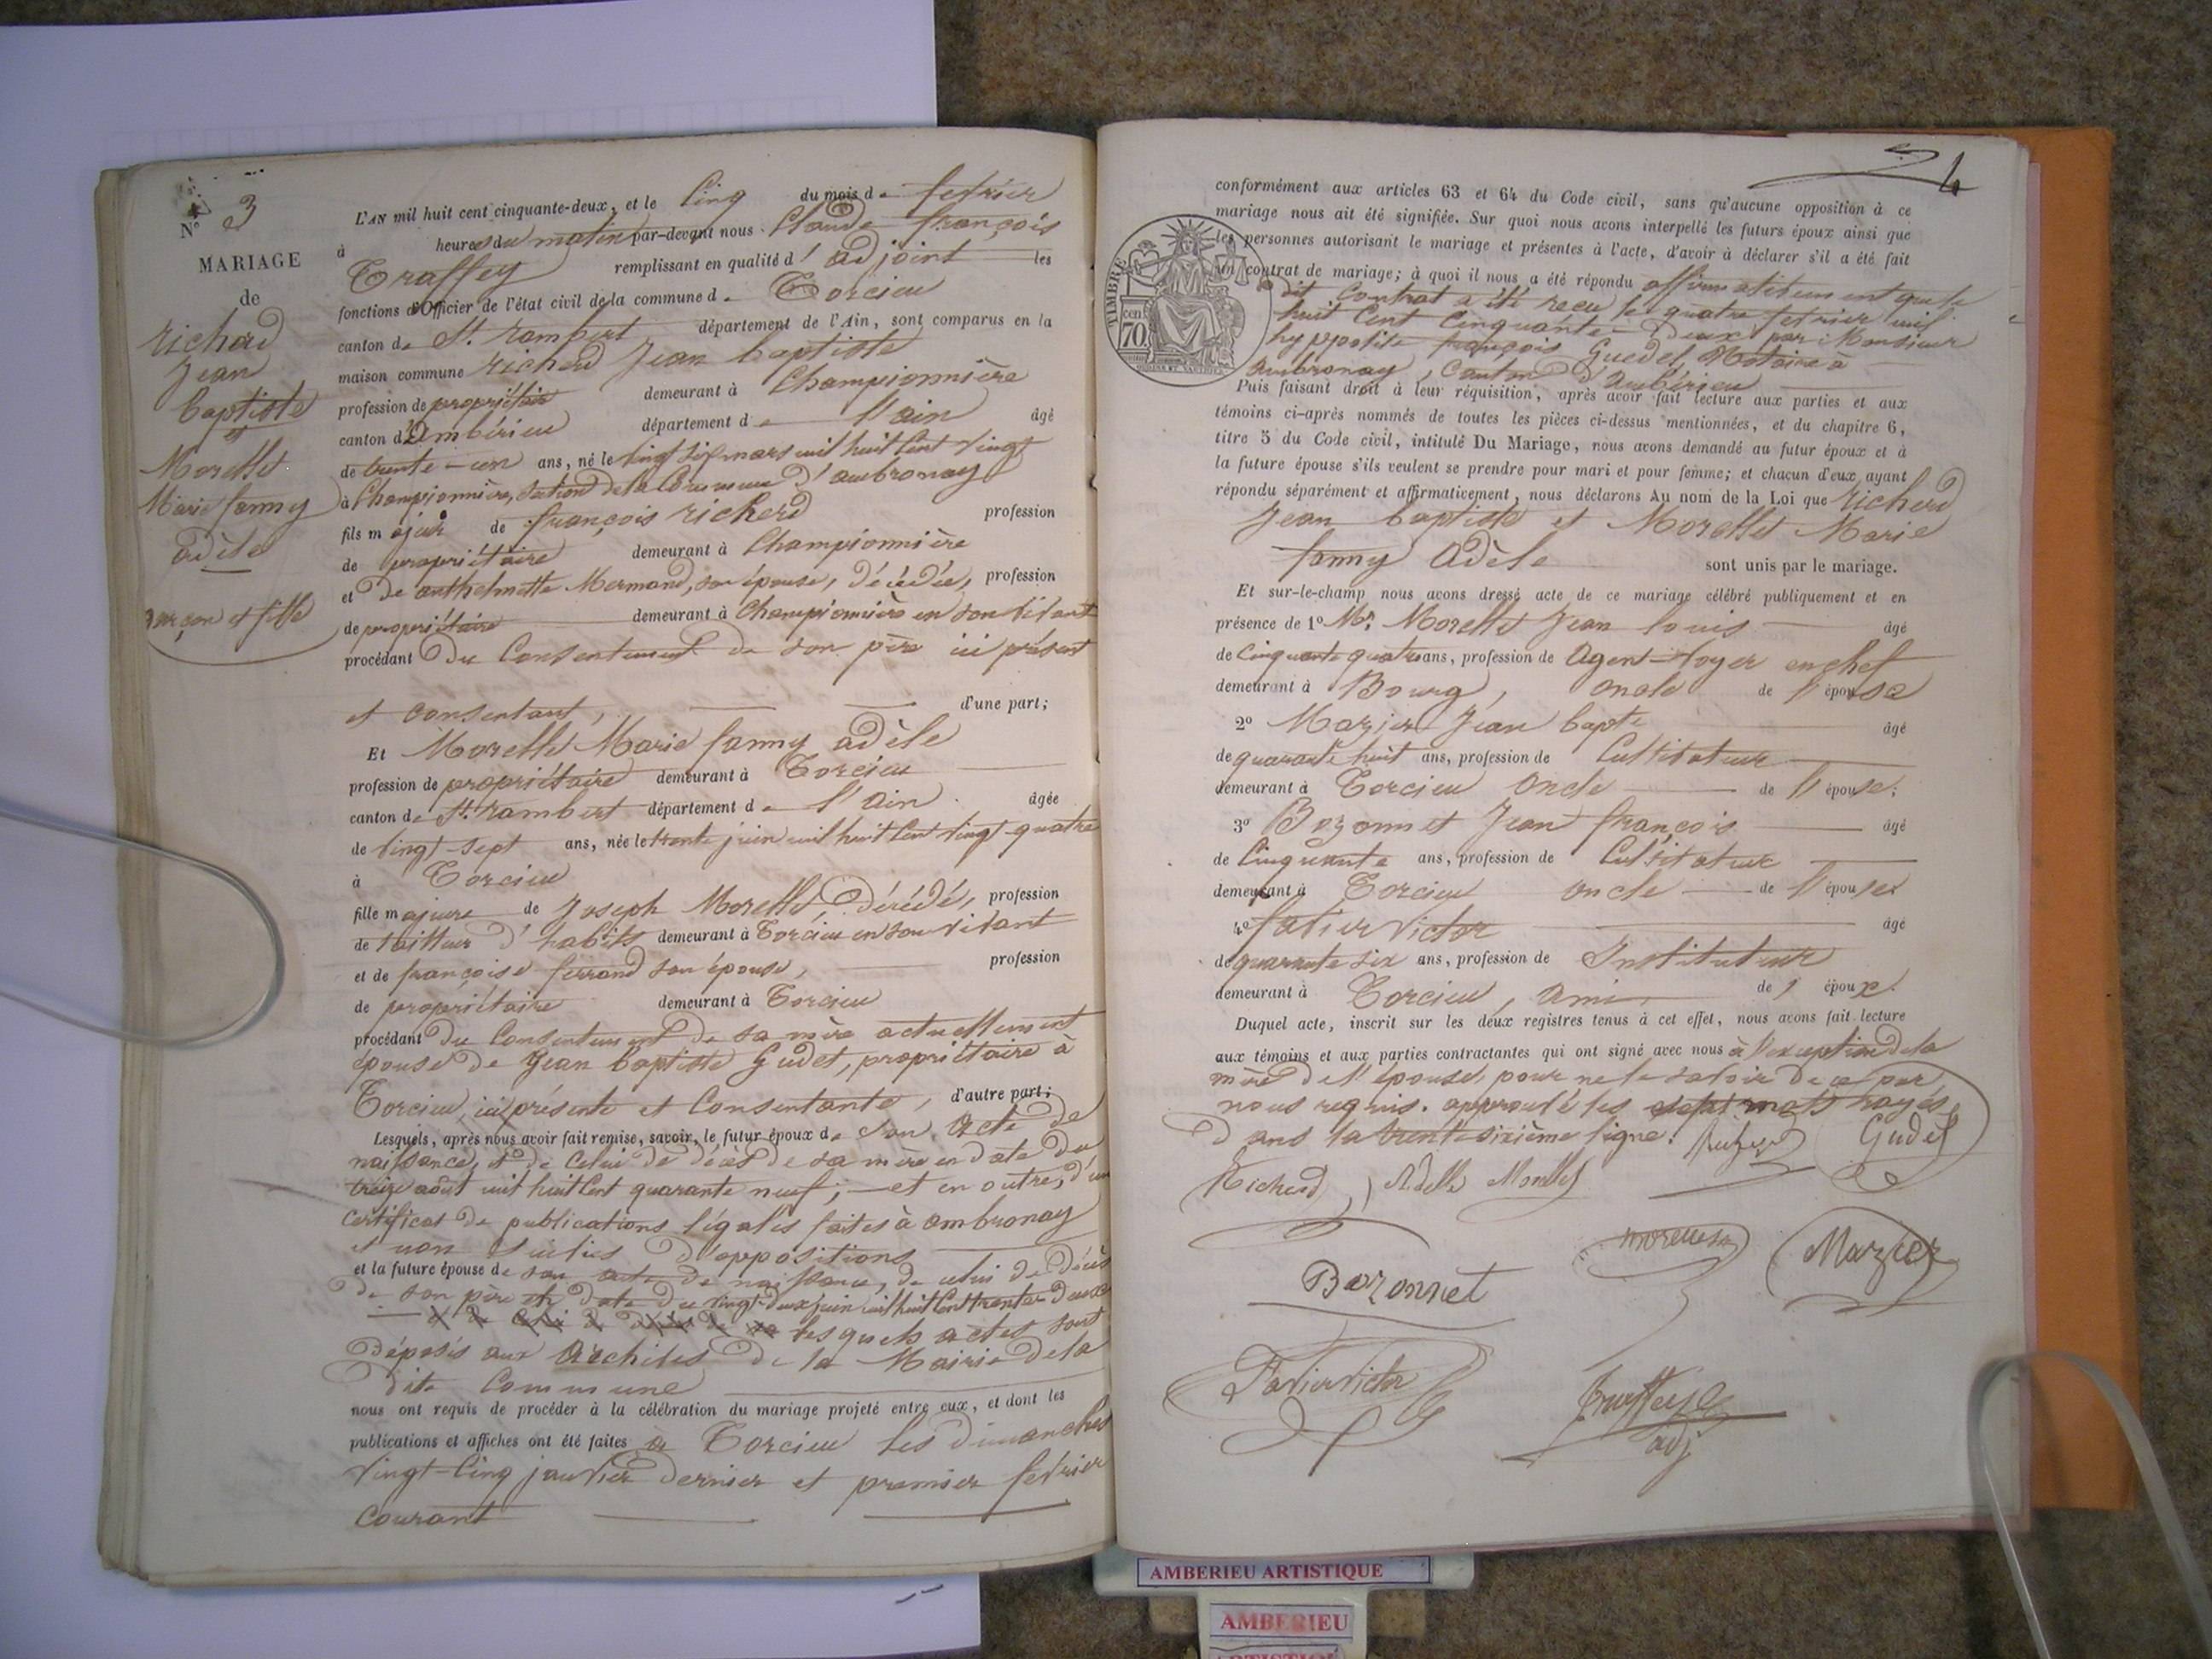 N° 3
MARIAGE
de
richerd
Jean
baptiste
et
Morellet
Marie fanny
adèle
garçon et fille
L'AN mil huit cent cinquante-deux, et le Cinq du mois de fevrier
à heures du matin par-devant nous Claude françois
Traffey remplissant en qualité d'adjoint les
fonctions d'Officier de l'état civil de la commune de Torcieu
canton de St. rambert département de l'Ain, sont comparus en la
maison commune richerd Jean baptiste
profession de propriétaire demeurant à Championnière
canton d'Ambérieu département de l'ain âgé
de trente-un ans, né le vingt six mars mil huit Cent vingt
à Championnière, section de la Commune d'ambronay
fils majeur de françois richerd profession
de propriétaire demeurant à Championnière
et de anthelmette Mermand, son épouse, décédée, profession
de propriétaire demeurant à Championnière en son vivant
procédant du Consentement de son père ici présent
et consentant, d'une part;
Et Morellet Marie fanny adèle
profession de propriétaire demeurant à Torcieu
canton de St. rambert département de l'ain âgée
de vingt-sept ans, née le trente juin mil huit Cent vingt-quatre
à Torcieu
fille majeure de Joseph Morellet, Décédé, profession
de tailleur d'habits demeurant à Torcieu en son vivant
et de françoise ferrand son épouse, profession
de propriétaire demeurant à Torcieu
procédant du Consentement de sa mère actuellement
épouse de Jean baptiste Gudet, propriétaire à
Torcieu, ici présente et Consentante, d'autre part;
Lesquels, après nous avoir fait remise, savoir, le futur époux de son acte de
naissance, et de celui de décès de sa mère en date du
treize août mil huit Cent quarante neuf; et en outre, d'un
Certificat de publications légales faites à ambronay
et non suivies d'oppositions
et la future épouse de son acte de naissance, de celui de décès
de son père en date du vingt-deux juin mil huit Cent trente-deux
et de celui de décès de sa lesquels actes sont
déposés aux archives de la Mairie de la
dite Commune
nous ont requis de procéder à la célébration du mariage projeté entre eux, et dont les
publications et affiches ont été faites à Torcieu les dimanches
vingt-Cinq janvier dernier et premier fevrier
Courant
4
conformément aux articles 63 et 64 du Code civil, sans qu'aucune opposition à ce
mariage nous ait été signifiée. Sur quoi nous avons interpellé les futurs époux ainsi que
les personnes autorisant le mariage et présentes à l'acte, d'avoir à déclarer s'il a été fait
un contrat de mariage; à quoi il nous a été répondu affirmativement que le
dit Contrat a été reçu le quatre fevrier mil
huit Cent Cinquante-deux par Monsieur
hyppolite françois Guedel Notaire à
ambronay, Canton d'ambérieu
TIMBRE
70 cen
Puis faisant droit à leur réquisition, après avoir fait lecture aux parties et aux
témoins ci-après nommés de toutes les pièces ci-dessus mentionnées, et du chapitre 6,
titre 5 du Code civil, intitulé Du Mariage, nous avons demandé au futur époux et à
la future épouse s'ils veulent se prendre pour mari et pour femme; et chacun d'eux ayant
répondu séparément et affirmativement, nous déclarons Au nom de la Loi que richerd
Jean baptiste et Morellet Marie
fanny adèle sont unis par le mariage.
Et sur-le-champ nous avons dressé acte de ce mariage célébré publiquement et en
présence de 1° Mr. Morellet Jean louis âgé
de Cinquante quatre ans, profession de Agent-voyer en chef
demeurant à Bourg, oncle de l'épouse
2° Mazier Jean bapte âgé
de quarante huit ans, profession de Cultivateur
demeurant à Torcieu oncle de l'épouse;
3° Bozonnet Jean françois âgé
de Cinquante ans, profession de Cultivateur
demeurant à Torcieu oncle de l'épouse
4° favier Victor âgé
de quarante six ans, profession de Instituteur
demeurant à Torcieu, ami de l'époux.
Duquel acte, inscrit sur les deux registres tenus à cet effet, nous avons fait lecture
aux témoins et aux parties contractantes qui ont signé avec nous à l'exception de la
mère de l'épouse, pour ne le savoir de ce par
nous requis. approuvé les sept mots rayés
dans la trente-sixième ligne. Gudet
Richerd Adelle Morellet
Morellet Mazier
Bozonnet
Favier Victor Traffey
adj
AMBERIEU ARTISTIQUE
AMBERIEU
ARTISTIQUE